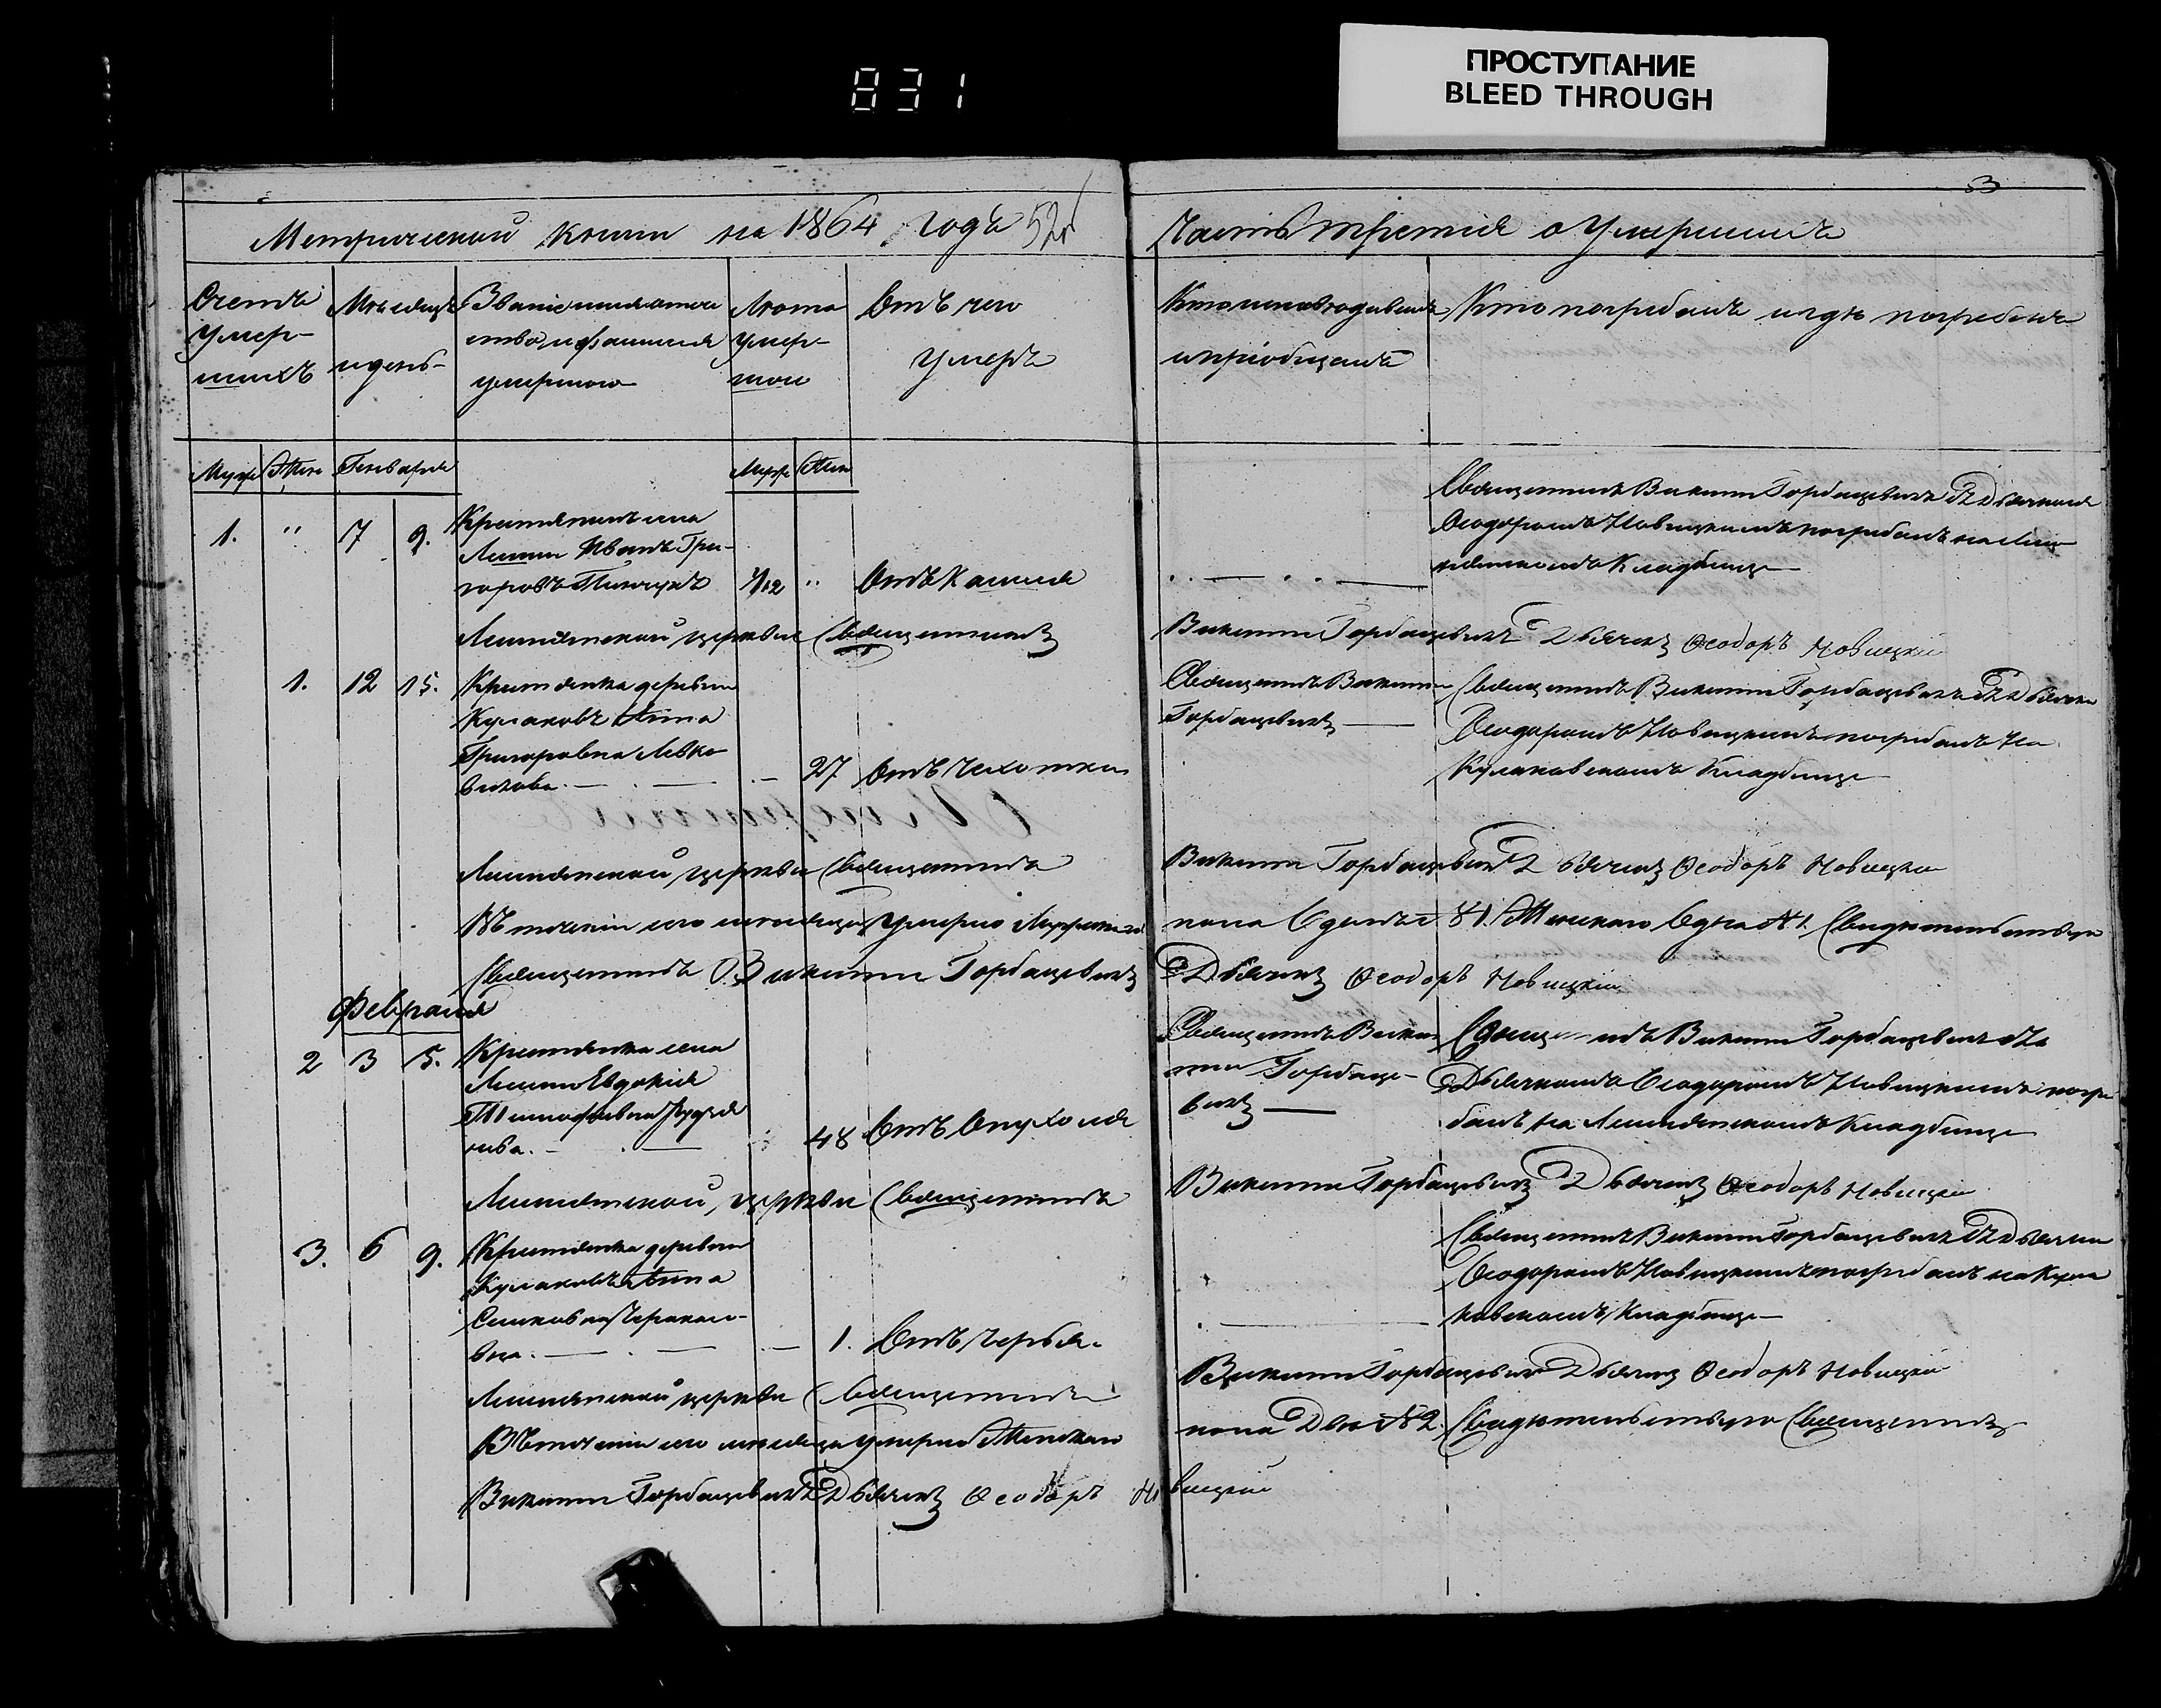 831
ПРОСТУПАНИЕ
BLEED THROUGH
3
Метрической книги на 1864 годъ
Часть третія о Умершихъ
Счетъ умер-шихъ
Мѣсяцъ и день
Званіе имя отчество и фамилія умершаго
Лѣта умер-шаго
Отъ чего умеръ
Кто исповѣдывалъ и пріобщалъ
Кто погребалъ и гдѣ погребенъ
Муж Жен Генваря
Муж Жен
1. " 7 9.
Крестьянинъ села
Иванъ Гри-
горовъ
1/12 " Отъ Кашля
Священникъ Викентій Горбацевичъ съ Дьячкомъ
Ѳеодоромъ Новицкимъ погребалъ на
Кладбище
церкви Священникъ
Викентій Горбацевичъ Дьячекъ Ѳеодоръ Новицкій
1. 12 15.
Крестьянка деревни
Кулаковъ Анна
Григоровна Левко
вичова
27 Отъ Чахотки
Священникъ Викентій
Горбацевичъ
Священникъ Викентій Горбацевичъ съ Дьячкомъ
Ѳеодоромъ Новицкимъ погребалъ на
Кулаковскомъ Кладбище
церкви Священникъ
Викентій Горбацевичъ Дьячекъ Ѳеодоръ Новицкій
Въ теченіи сего мѣсяца умерло Мужескаго
пола Одинъ № 1. Женскаго Одна № 1. Свидѣтельствую
Священникъ Викентій Горбацевичъ
Дьячекъ Ѳеодоръ Новицкій
Февраля
2 3 5.
Крестьянка села
Евдокія
48 Отъ Опухоли
Священникъ Викен
тій Горбаце-
вичъ
Священникъ Викентій Горбацевичъ съ
Дьячкомъ Ѳеодоромъ Новицкимъ погре
балъ на Кладбище
церкви Священникъ
Викентій Горбацевичъ Дьячекъ Ѳеодоръ Новицкій
3. 6 9.
Крестьянка деревни
Кулаковъ Анна
1. Отъ Червей
Священникъ Викентій Горбацевичъ съ Дьячкомъ
Ѳеодоромъ Новицкимъ погребалъ на Кула
ковскомъ Кладбище
церкви Священникъ
Викентій Горбацевичъ Дьячекъ Ѳеодоръ Новицкій
Въ теченіи сего мѣсяца умерло Женскаго
пола Двѣ № 2. Свидѣтельствую Священникъ
Викентій Горбацевичъ Дьячекъ Ѳеодоръ Новицкій